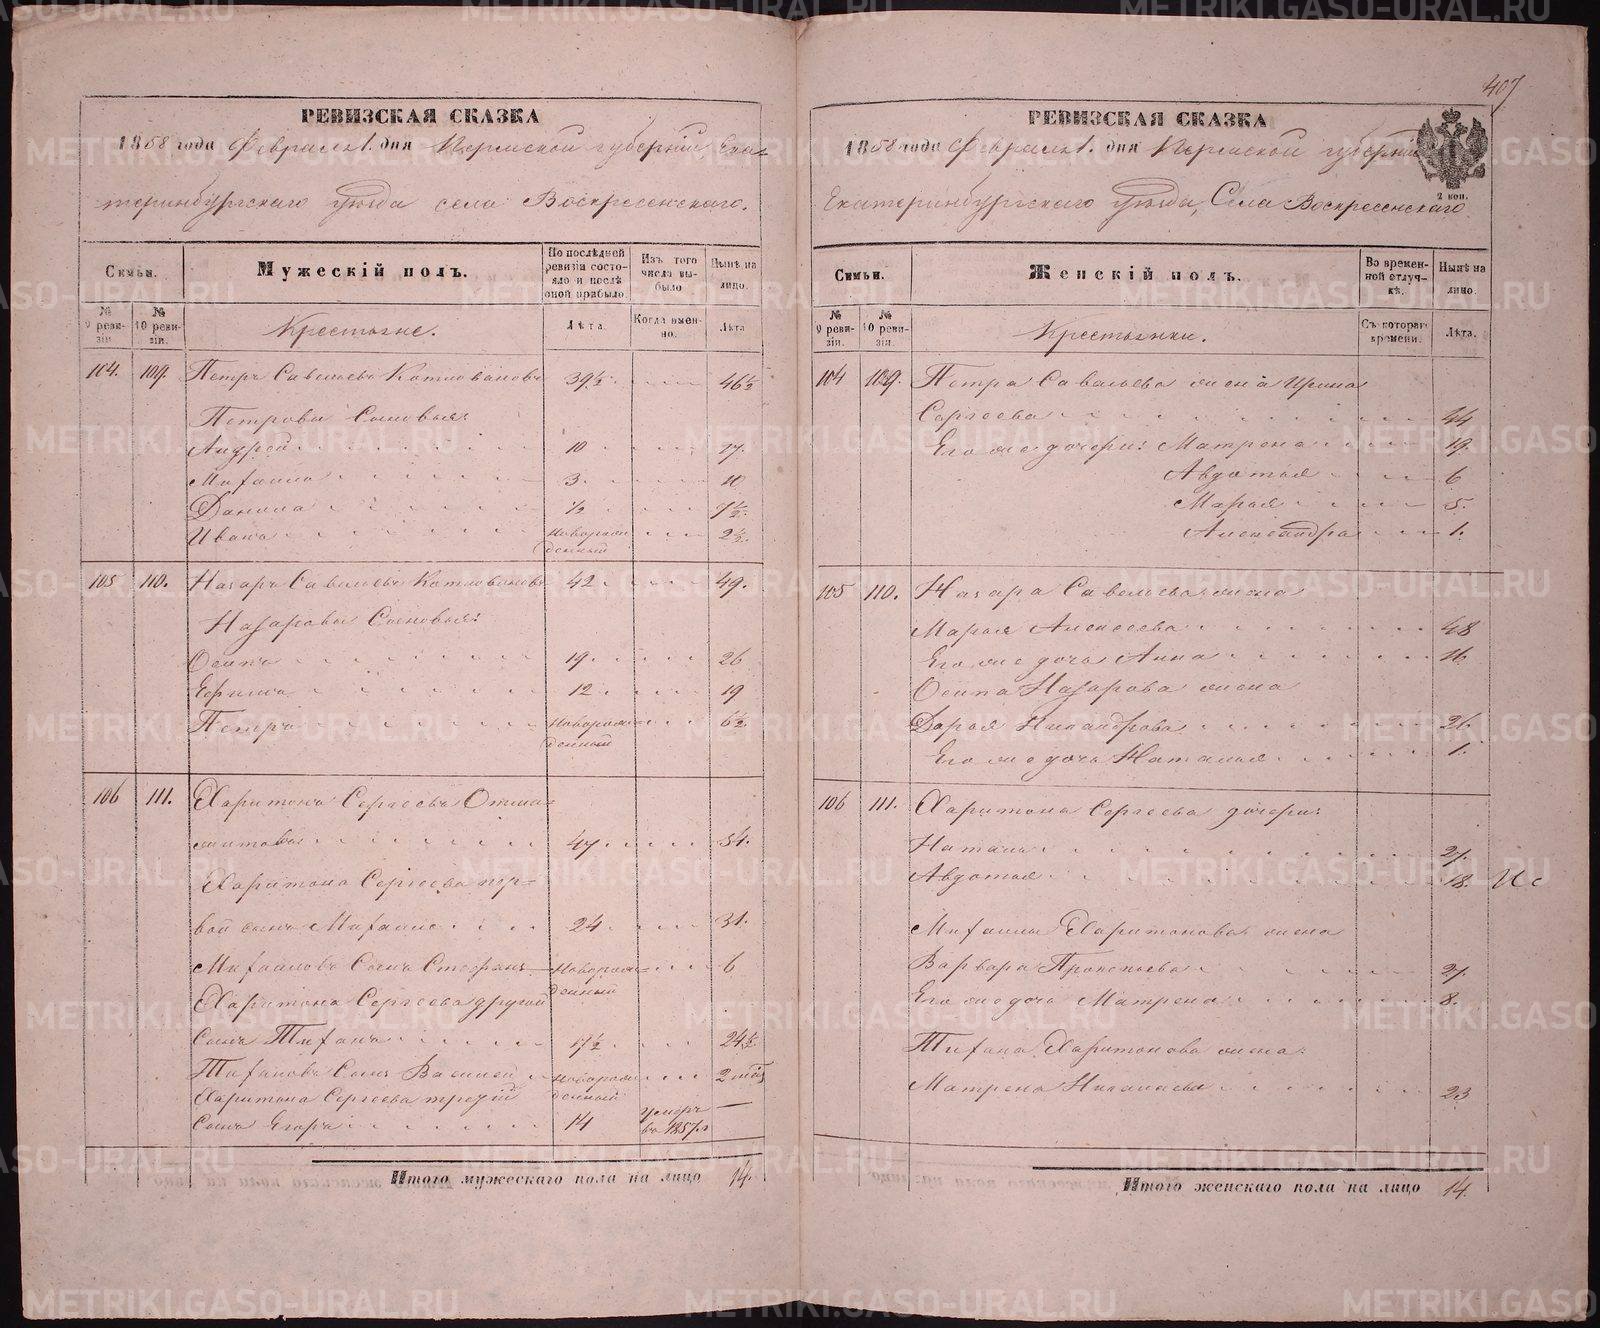 407
РЕВИЗСКАЯ СКАЗКА
1858 года Февраля 1. дня Пермской губернiи, Ека-
теринбургскаго уѣзда села Воскресенскаго.
Семьи.
Мужескiй полъ.
По послѣдней ревизiи состояло и послѣ оной прибыло.
Изъ того числа выбыло
Нынѣ на лицо.
№ 9 ревизiи.
№ 10 ревизiи.
Крестьяне.
Лѣта.
Когда именно.
Лѣта
104. 109. Петръ Савельевъ Котловановъ 39½ 46½
Петровы Сыновья:
Андрей 10 17.
Михаило 3. 10
Данила ½ 7½.
Иванъ Новорожденный 2½.
105 110. Назаръ Савельевъ Котловановъ 42 49.
Назаровы Сыновья:
Осипъ 19. 26
Ефимъ 12 19
Петръ Новорожденный 6½.
106 111. Харитонъ Сергеевъ
47 54.
Харитона Сергеева пер-
вой сынъ Михаило 24 31.
Михаиловъ Сынъ Стефанъ Новорожденный 6
Харитона Сергеева другой
Сынъ Тифанъ 17½ 24½
Тифановъ Сынъ Василей Новорожденный 2 мѣс
Харитона Сергеева третiй
Сынъ Егоръ 14 умеръ въ 1857 г —
Итого мужескаго пола на лицо 14.
РЕВИЗСКАЯ СКАЗКА
1858 года Февраля 1. дня Пермской губернiи
2 коп.
Екатеринбургскаго уѣзда, Села Воскресенскаго
Семьи.
Женскiй полъ.
Во временной отлучкѣ.
Нынѣ на лицо.
№ 9 ревизiи.
№ 10 ревизiи.
Крестьянки.
Съ котораго времени.
Лѣта.
104 109. Петра Савельева жена Ирина
Сергеева 44
Его же дочери: Матрена 19.
Авдотья 6
Марья 5.
Александра 1.
105 110. Назара Савельева жена
Марья Алексеева 48
Его же дочь Анна 16
Осипа Назарова жена
Дарья Никандрова 26.
Его же дочь Наталья 1.
106 111. Харитона Сергеева дочери:
Наталья 27.
Авдотья 18.
Михаила Харитонова жена
Варвара Прокопьева 27.
Его же дочь Матрена 8.
Тифана Харитонова жена
Матрена Николаева 23
Итого женскаго пола на лицо 14.
METRIKI.GASO-URAL.RU